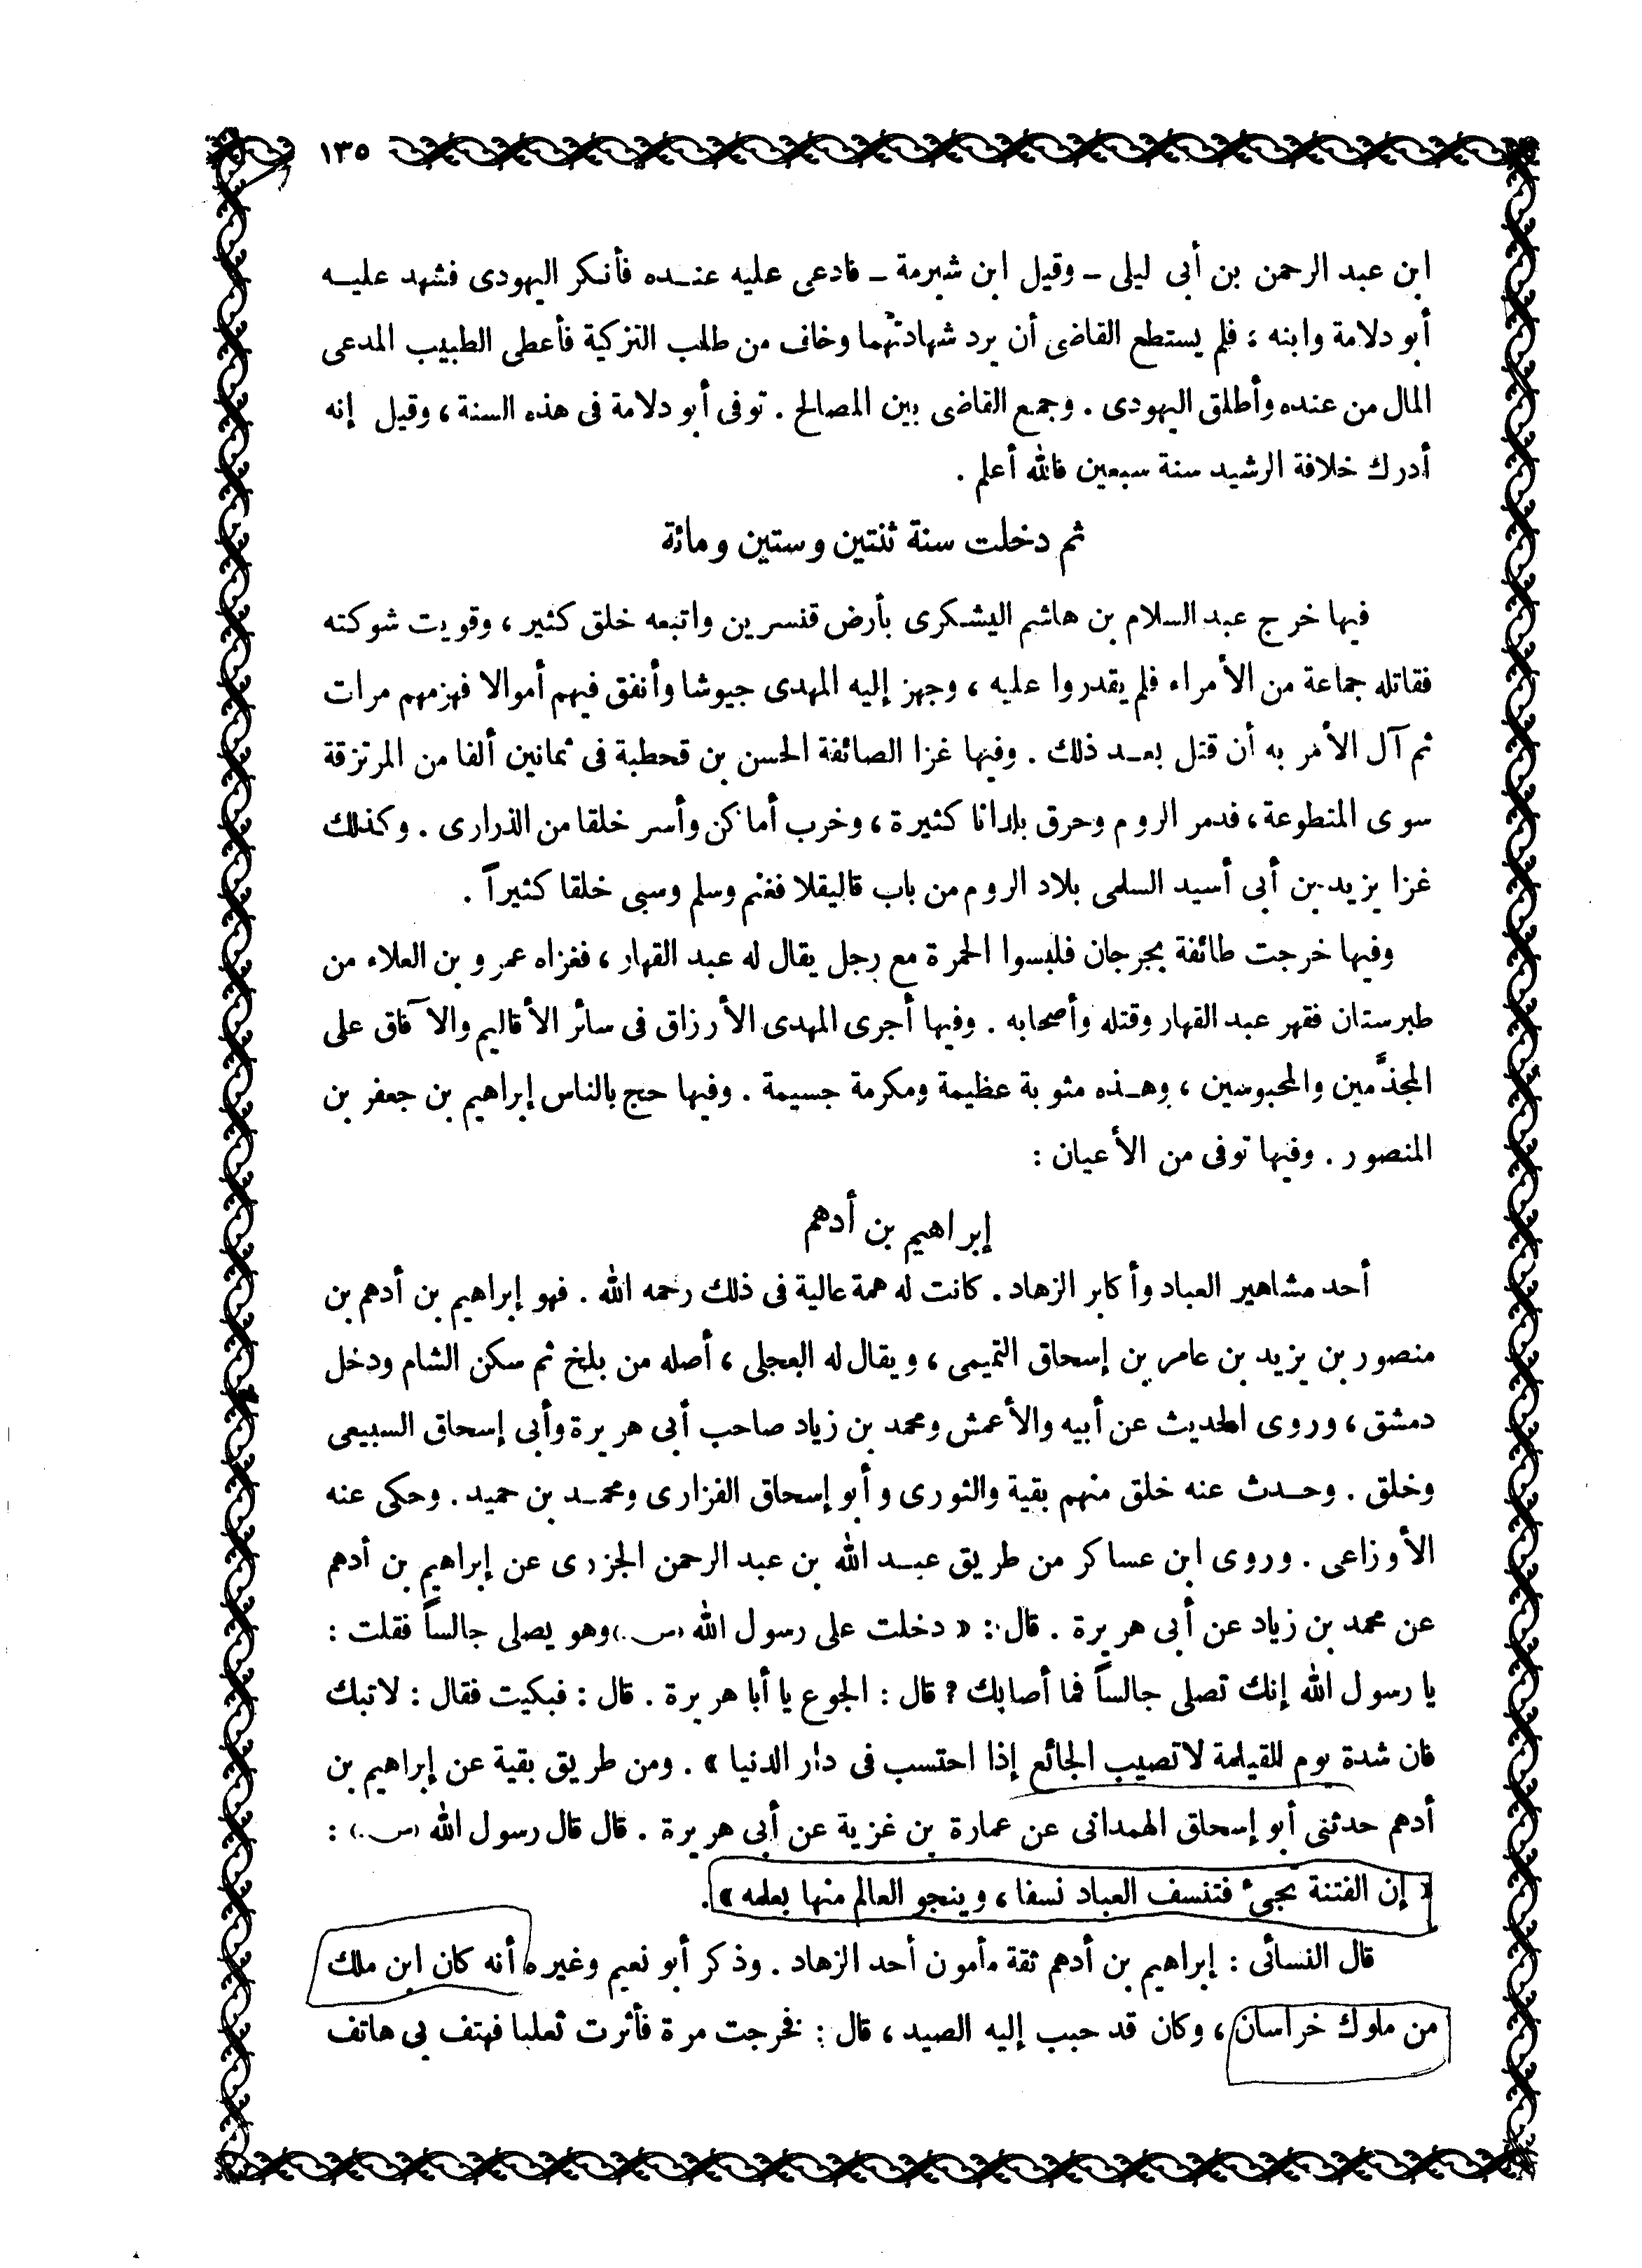 ١٣٥
ابن عبد الرحمن بن أبى ليلى ـ وقيل ابن شبرمة ـ فادعى عليه عنـده فأنكر اليهودى فشهد عليـه
أبو دلامة وابنه ؛ فلم يستطع القاضى أن يرد شهادتهما وخاف من طلب التزكية فأعطى الطبيب المدعى
المال من عنده وأطلق اليهودى . وجمع القاضى بين المصالح . توفى أبو دلامة فى هذه السنة ، وقيل إنه
أدرك خلافة الرشيد سنة سبعين فالله أعلم .
ثم دخلت سنة ثنتين وستين ومائة
فيها خرج عبد السلام بن هاشم اليشكرى بأرض قنسرين واتبعه خلق كثير ، وقويت شوكته
فقاتله جماعة من الأمراء فلم يقدروا عليه ، وجهز إليه المهدى جيوشا وأنفق فيهم أموالا فهزمهم مرات
ثم آل الأمر به أن قتل بعـد ذلك . وفيها غزا الصائفة الحسن بن قحطبة فى ثمانين ألفا من المرتزقة
سوى المتطوعة ، فدمر الروم وحرق بلدانا كثيرة ، وخرب أماكن وأسر خلقا من الذرارى . وكذلك
غزا يزيد بن أبى أسيد السلمى بلاد الروم من باب قاليقلا فغنم وسلم وسبى خلقا كثيراً .
وفيها خرجت طائفة بجرجان فلبسوا الحمرة مع رجل يقال له عبد القهار ، فغزاه عمرو بن العلاء من
طبرستان فقهر عبد القهار وقتله وأصحابه . وفيها أجرى المهدى الأرزاق فى سائر الأقاليم والآفاق على
المجذَّمين والمحبوسين ، وهـذه مثوبة عظيمة ومكرمة جسيمة . وفيها حج بالناس إبراهيم بن جعفر بن
المنصور . وفيها توفى من الأعيان :
إبراهيم بن أدهم
أحد مشاهير العباد وأكابر الزهاد . كانت له همة عالية فى ذلك رحمه الله . فهو إبراهيم بن أدهم بن
منصور بن يزيد بن عامر بن إسحاق التميمى ، ويقال له العجلى ، أصله من بلخ ثم سكن الشام ودخل
دمشق ، وروى الحديث عن أبيه والأعمش ومحمد بن زياد صاحب أبى هريرة وأبى إسحاق السبيعى
وخلق . وحـدث عنه خلق منهم بقية والثورى وأبو إسحاق الفزارى ومحمـد بن حميد . وحكى عنه
الأوزاعى . وروى ابن عساكر من طريق عبـد الله بن عبد الرحمن الجزرى عن إبراهيم بن أدهم
عن محمد بن زياد عن أبى هريرة . قال : « دخلت على رسول الله (س.) وهو يصلى جالساً فقلت :
يا رسول الله إنك تصلى جالساً فما أصابك ؟ قال : الجوع يا أبا هريرة . قال : فبكيت فقال : لا تبك
فان شدة يوم القيامة لا تصيب الجائع إذا احتسب فى دار الدنيا » . ومن طريق بقية عن إبراهيم بن
أدهم حدثنى أبو إسحاق الهمدانى عن عمارة بن غزية عن أبى هريرة . قال قال رسول الله (س.) :
« إن الفتنة تجىء فتنسف العباد نسفا ، وينجو العالم منها بعلمه » .
قال النسائى : إبراهيم بن أدهم ثقة مأمون أحد الزهاد . وذكر أبو نعيم وغيره أنه كان ابن ملك
من ملوك خراسان ، وكان قد حبب إليه الصيد ، قال : فخرجت مرة فأثرت ثعلبا فهتف بى هاتف